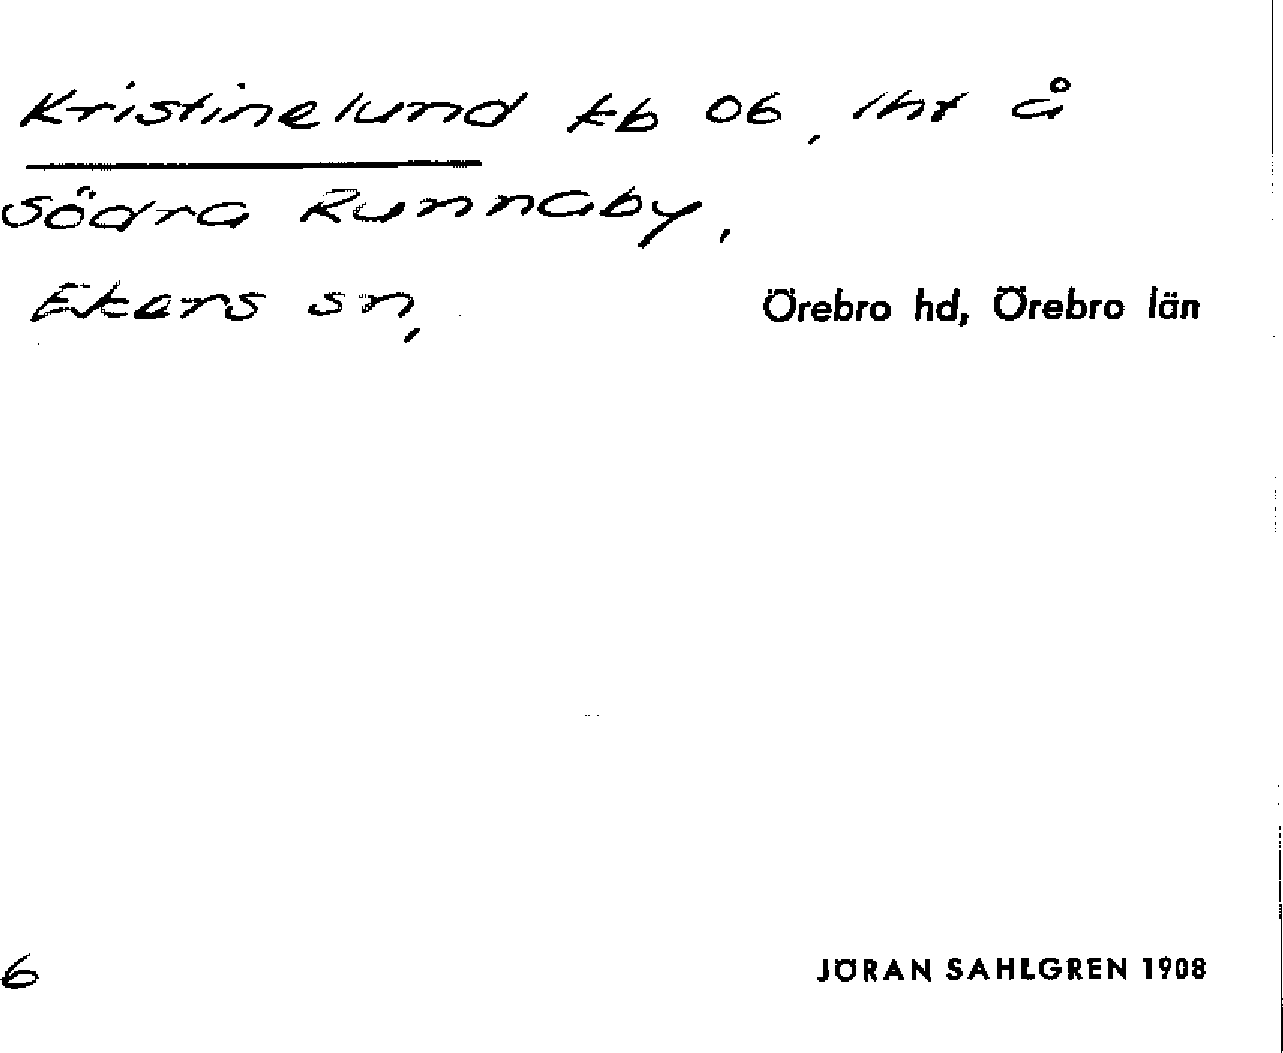 Kristinelund kb 06, lht å
Södra Runnaby,
Ekers sn, Örebro hd, Örebro län
6 JÖRAN SAHLGREN 1908